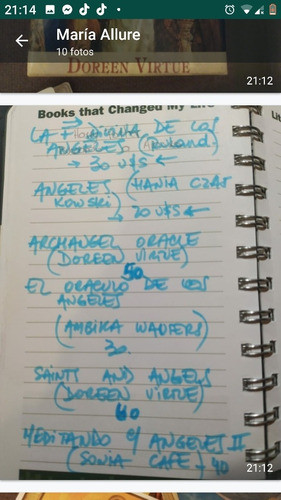 21:14
María Allure
10 fotos
DOREEN VIRTUE
21:12
Books that Changed My Life
LA DE LOS
ANGELES (
→ 30 U$S ←
ANGELES (HANIA CZAJ
KOWSKI)
→ 20 U$S ←
ARCHANGEL ORACLE
(DOREEN VIRTUE)
50
EL ORACULO DE LOS
ANGELES
(AMBIKA WAUTERS)
30.
SAINTS AND ANGELS
(DOREEN VIRTUE)
60
MEDITANDO c/ ANGELES II
(SONIA CAFE) → 40
21:12